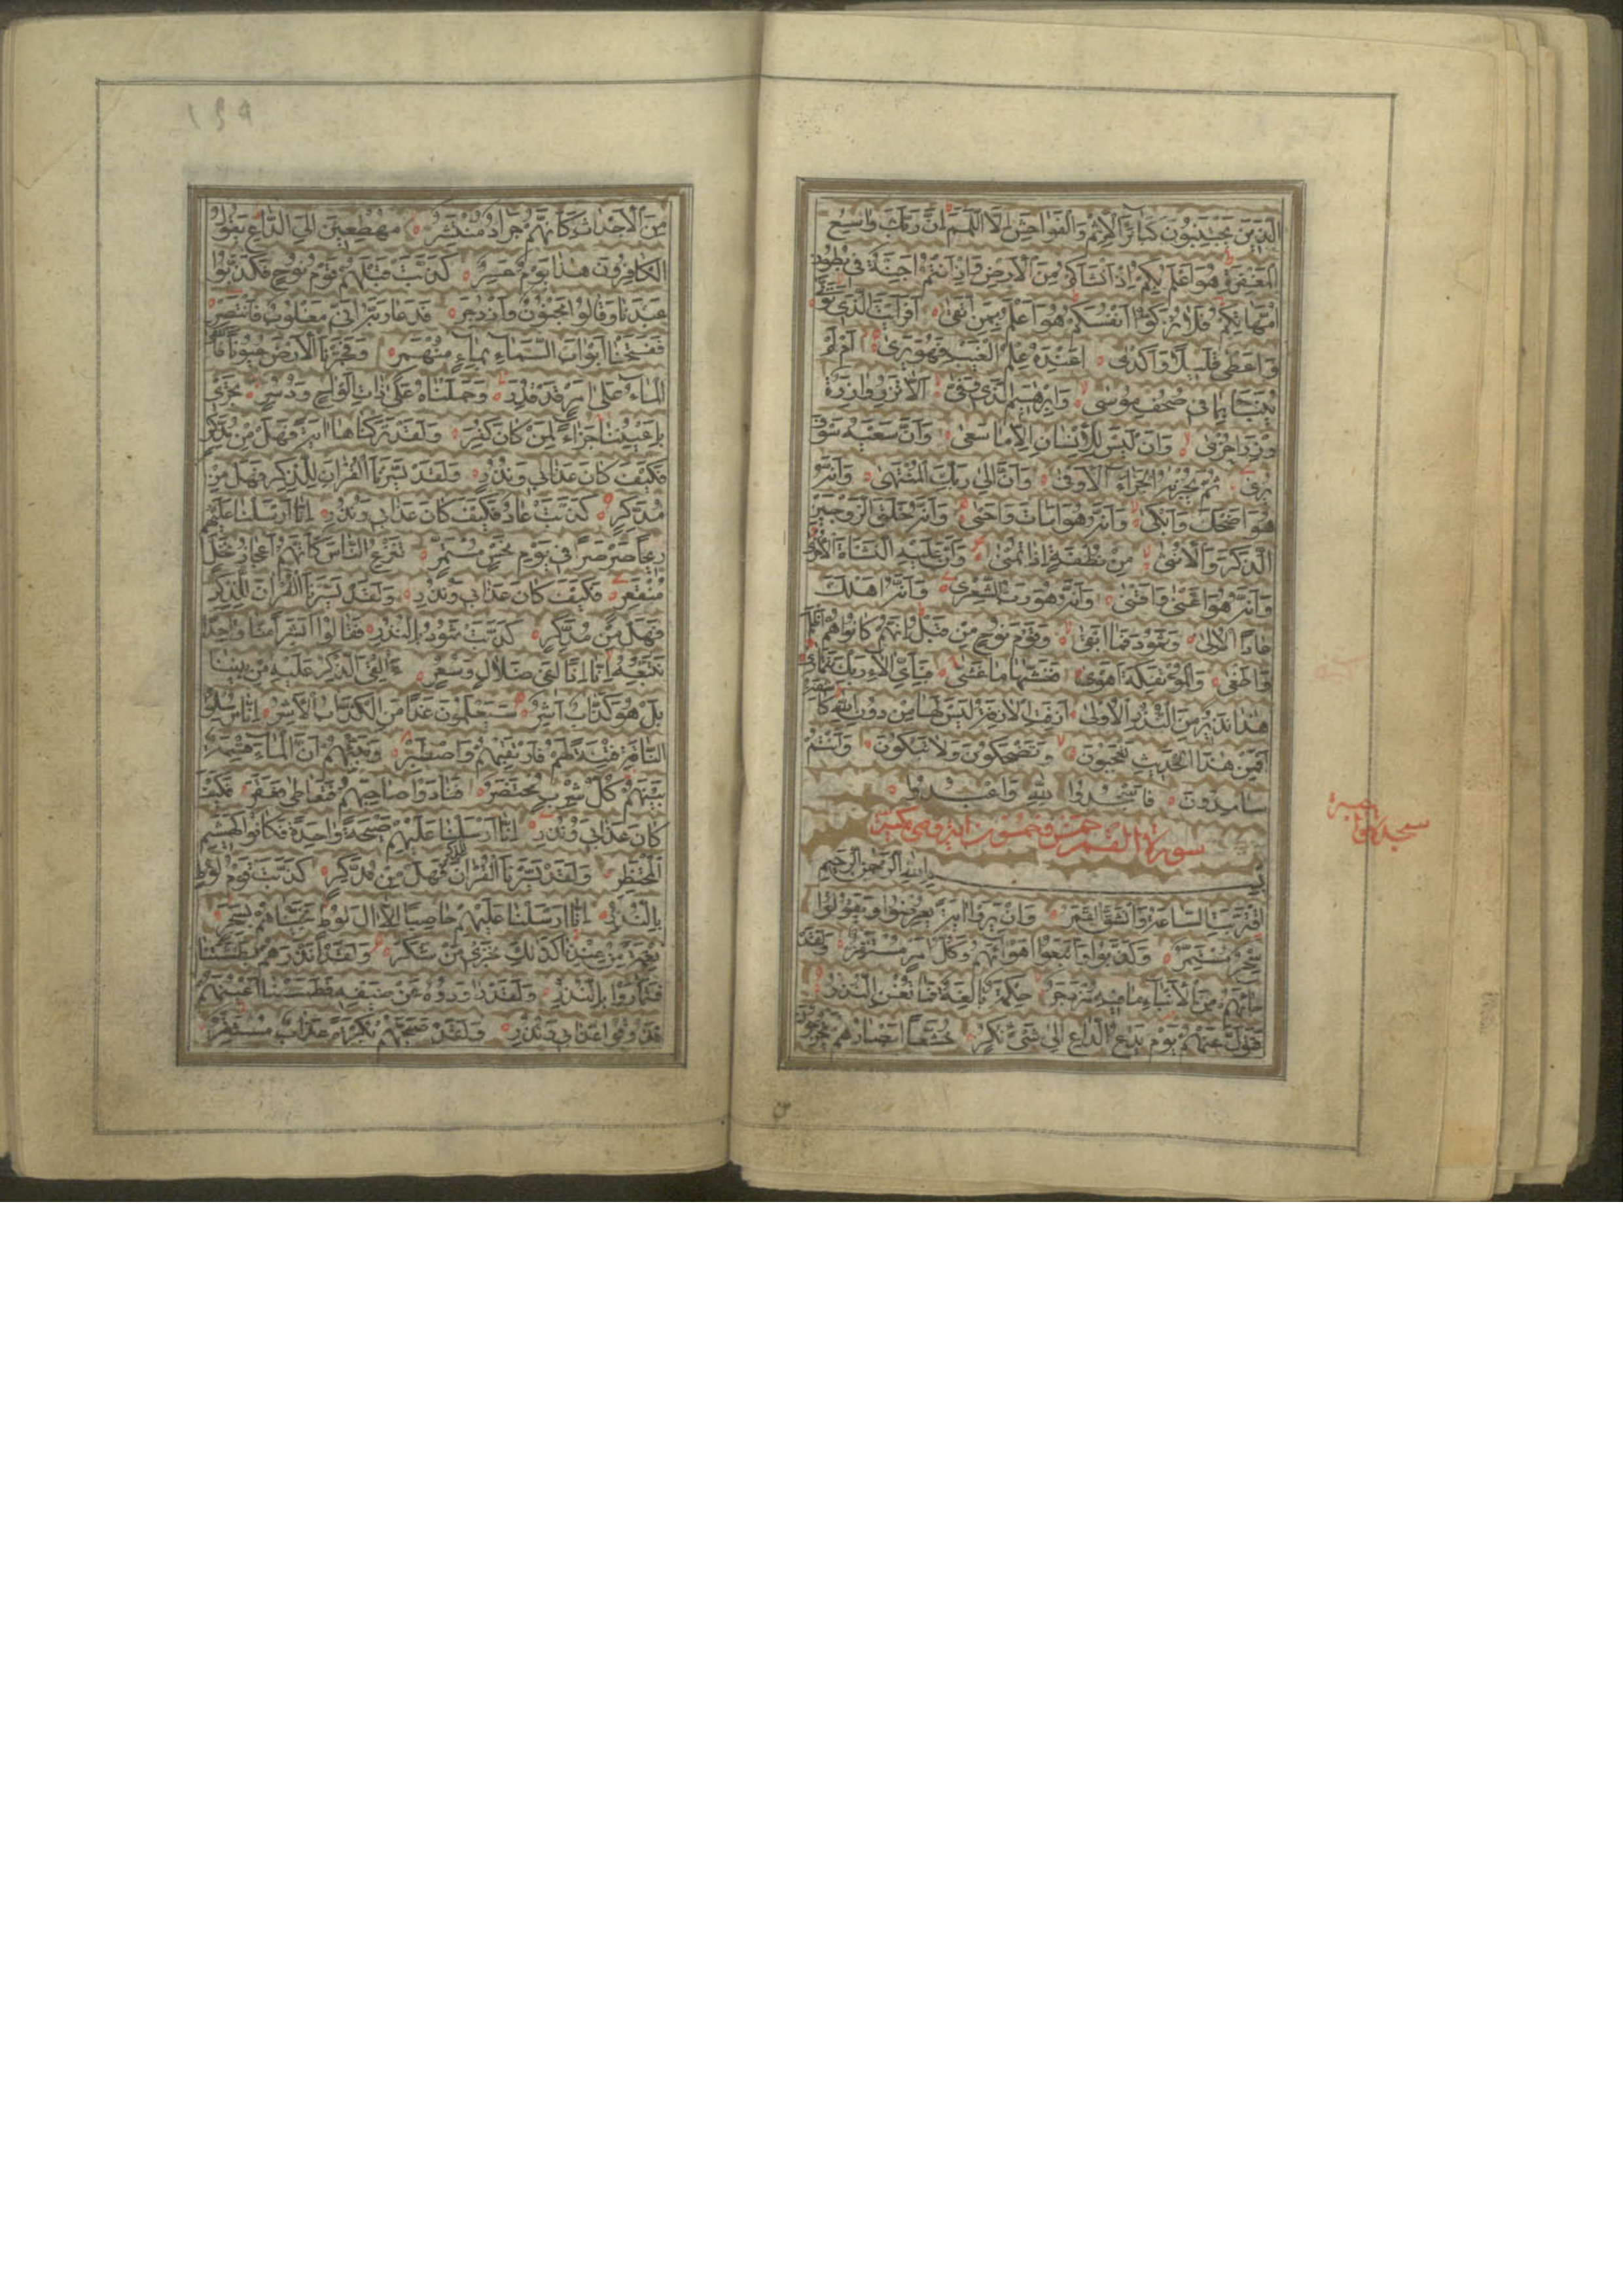 الَّذينَ يَجْتَنِبُونَ كَبائِرَ الْاِثْمِ وَالْفَواحِشَ اِلَّا اللَّمَمَ اِنَّ رَبَّكَ واسِعُ
الْمَغْفِرَةِ هُوَ اَعْلَمُ بِكُمْ اِذْ اَنْشَاَكُمْ مِنَ الْاَرْضِ وَاِذْ اَنْتُمْ اَجِنَّةٌ في بُطُونِ
اُمَّهاتِكُمْ فَلا تُزَكُّوا اَنْفُسَكُمْ هُوَ اَعْلَمُ بِمَنِ اتَّقى اَفَرَاَيْتَ الَّذي تَوَلّى
وَاَعْطى قَليلًا وَاَكْدى اَعِنْدَهُ عِلْمُ الْغَيْبِ فَهُوَ يَرى اَمْ لَمْ
يُنَبَّأْ بِما في صُحُفِ مُوسى وَاِبْرهيمَ الَّذي وَفّى اَلَّا تَزِرُ وازِرَةٌ
وِزْرَ اُخْرى وَاَنْ لَيْسَ لِلْاِنْسانِ اِلَّا ما سَعى وَاَنَّ سَعْيَهُ سَوْفَ
يُرى ثُمَّ يُجْزيهُ الْجَزاءَ الْاَوْفى وَاَنَّ اِلى رَبِّكَ الْمُنْتَهى وَاَنَّهُ
هُوَ اَضْحَكَ وَاَبْكى وَاَنَّهُ هُوَ اَماتَ وَاَحْيى وَاَنَّهُ خَلَقَ الزَّوْجَيْنِ
الذَّكَرَ وَالْاُنْثى مِنْ نُطْفَةٍ اِذا تُمْنى وَاَنَّ عَلَيْهِ النَّشْاَةَ الْاُخْرى
وَاَنَّهُ هُوَ اَغْنى وَاَقْنى وَاَنَّهُ هُوَ رَبُّ الشِّعْرى وَاَنَّهُ اَهْلَكَ
عادًا الْاُولى وَثَمُودَ فَما اَبْقى وَقَوْمَ نُوحٍ مِنْ قَبْلُ اِنَّهُمْ كانُوا هُمْ اَظْلَمَ
وَاَطْغى وَالْمُؤْتَفِكَةَ اَهْوى فَغَشّيها ما غَشّى فَبِاَيِّ الاءِ رَبِّكَ تَتَمارى
هذا نَذيرٌ مِنَ النُّذُرِ الْاُولى اَزِفَتِ الْازِفَةُ لَيْسَ لَها مِنْ دُونِ اللهِ كاشِفَةٌ
اَفَمِنْ هذَا الْحَديثِ تَعْجَبُونَ وَتَضْحَكُونَ وَلا تَبْكُونَ وَاَنْتُمْ
سامِدُونَ فَاسْجُدُوا لِلّهِ وَاعْبُدُوا
سورة القمر خمس وخمسون اية وهي مكية
سجده واجبة
بِسْمِ اللهِ الرَّحْمنِ الرَّحيمِ
اِقْتَرَبَتِ السّاعَةُ وَانْشَقَّ الْقَمَرُ وَاِنْ يَرَوْا ايَةً يُعْرِضُوا وَيَقُولُوا
سِحْرٌ مُسْتَمِرٌّ وَكَذَّبُوا وَاتَّبَعُوا اَهْواءَهُمْ وَكُلُّ اَمْرٍ مُسْتَقِرٌّ وَلَقَدْ
جاءَهُمْ مِنَ الْاَنْباءِ ما فيهِ مُزْدَجَرٌ حِكْمَةٌ بالِغَةٌ فَما تُغْنِ النُّذُرُ
فَتَوَلَّ عَنْهُمْ يَوْمَ يَدْعُ الدّاعِ اِلى شَيْءٍ نُكُرٍ خُشَّعًا اَبْصارُهُمْ يَخْرُجُونَ
من
١٤٩
مِنَ الْاَجْداثِ كَاَنَّهُمْ جَرادٌ مُنْتَشِرٌ مُهْطِعينَ اِلَى الدّاعِ يَقُولُ
الْكافِرُونَ هذا يَوْمٌ عَسِرٌ كَذَّبَتْ قَبْلَهُمْ قَوْمُ نُوحٍ فَكَذَّبُوا
عَبْدَنا وَقالُوا مَجْنُونٌ وَازْدُجِرَ فَدَعا رَبَّهُ اَنّي مَغْلُوبٌ فَانْتَصِرْ
فَفَتَحْنا اَبْوابَ السَّماءِ بِماءٍ مُنْهَمِرٍ وَفَجَّرْنَا الْاَرْضَ عُيُونًا فَالْتَقَى
الْماءُ عَلى اَمْرٍ قَدْ قُدِرَ وَحَمَلْناهُ عَلى ذاتِ اَلْواحٍ وَدُسُرٍ تَجْري
بِاَعْيُنِنا جَزاءً لِمَنْ كانَ كُفِرَ وَلَقَدْ تَرَكْناها ايَةً فَهَلْ مِنْ مُدَّكِرٍ
فَكَيْفَ كانَ عَذابي وَنُذُرِ وَلَقَدْ يَسَّرْنَا الْقُرْانَ لِلذِّكْرِ فَهَلْ مِنْ
مُدَّكِرٍ كَذَّبَتْ عادٌ فَكَيْفَ كانَ عَذابي وَنُذُرِ اِنّا اَرْسَلْنا عَلَيْهِمْ
ريحًا صَرْصَرًا في يَوْمِ نَحْسٍ مُسْتَمِرٍّ تَنْزِعُ النّاسَ كَاَنَّهُمْ اَعْجازُ نَخْلٍ
مُنْقَعِرٍ فَكَيْفَ كانَ عَذابي وَنُذُرِ وَلَقَدْ يَسَّرْنَا الْقُرْانَ لِلذِّكْرِ
فَهَلْ مِنْ مُدَّكِرٍ كَذَّبَتْ ثَمُودُ بِالنُّذُرِ فَقالُوا اَبَشَرًا مِنّا واحِدًا
نَتَّبِعُهُ اِنّا اِذًا لَفي ضَلالٍ وَسُعُرٍ ءَاُلْقِيَ الذِّكْرُ عَلَيْهِ مِنْ بَيْنِنا
بَلْ هُوَ كَذّابٌ اَشِرٌ سَيَعْلَمُونَ غَدًا مَنِ الْكَذّابُ الْاَشِرُ اِنّا مُرْسِلُوا
النّاقَةِ فِتْنَةً لَهُمْ فَارْتَقِبْهُمْ وَاصْطَبِرْ وَنَبِّئْهُمْ اَنَّ الْماءَ قِسْمَةٌ
بَيْنَهُمْ كُلُّ شِرْبٍ مُحْتَضَرٌ فَنادَوْا صاحِبَهُمْ فَتَعاطى فَعَقَرَ فَكَيْفَ
كانَ عَذابي وَنُذُرِ اِنّا اَرْسَلْنا عَلَيْهِمْ صَيْحَةً واحِدَةً فَكانُوا كَهَشيمِ
الْمُحْتَظِرِ وَلَقَدْ يَسَّرْنَا الْقُرْانَ لِلذِّكْرِ فَهَلْ مِنْ مُدَّكِرٍ كَذَّبَتْ قَوْمُ لُوطٍ
بِالنُّذُرِ اِنّا اَرْسَلْنا عَلَيْهِمْ حاصِبًا اِلّا الَ لُوطٍ نَجَّيْناهُمْ بِسَحَرٍ
نِعْمَةً مِنْ عِنْدِنا كَذلِكَ نَجْزي مَنْ شَكَرَ وَلَقَدْ اَنْذَرَهُمْ بَطْشَتَنا
فَتَمارَوْا بِالنُّذُرِ وَلَقَدْ راوَدُوهُ عَنْ ضَيْفِهِ فَطَمَسْنا اَعْيُنَهُمْ
فَذُوقُوا عَذابي وَنُذُرِ وَلَقَدْ صَبَّحَهُمْ بُكْرَةً عَذابٌ مُسْتَقِرٌّ